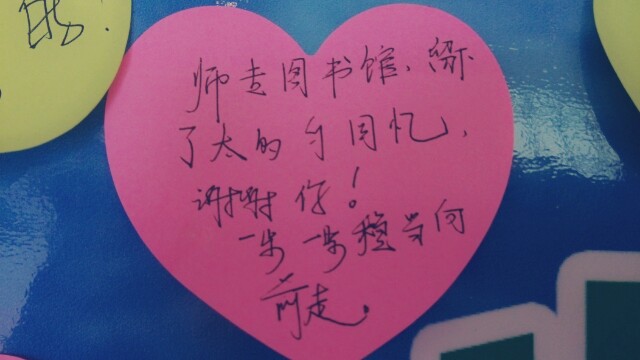 师专图书馆，留下
了太的多回忆，
谢谢你！
一步一步稳当向
前走。